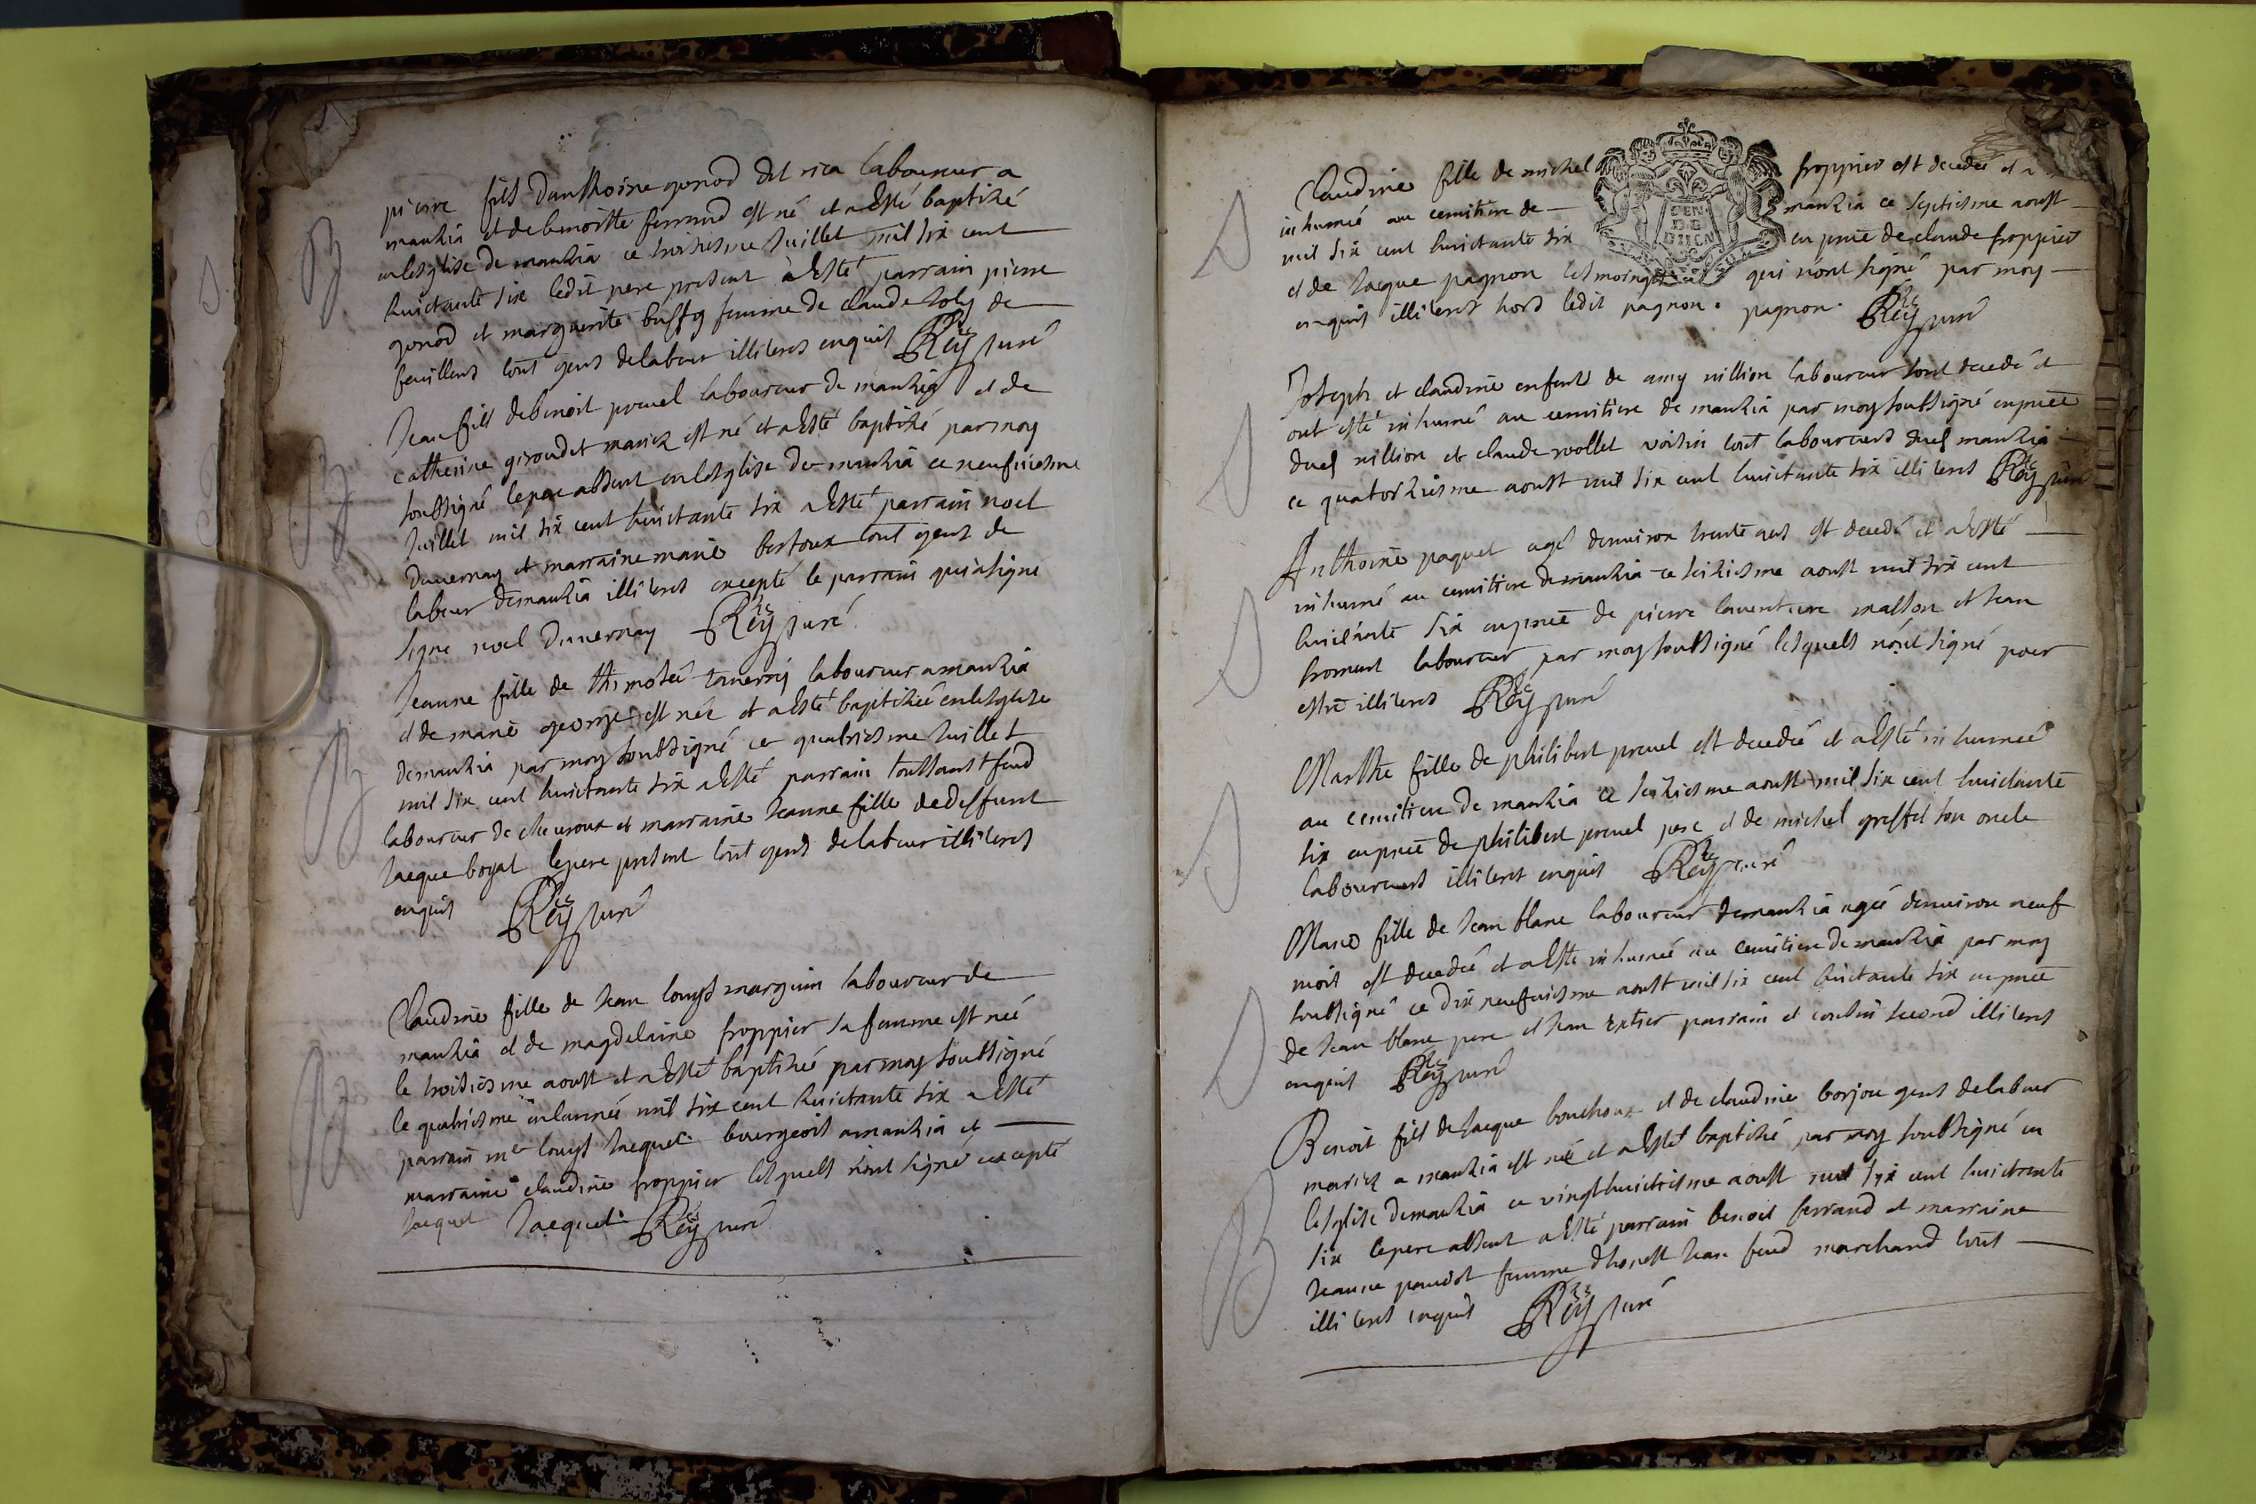 B
pierre fils d'anthoine gonod dit rica laboureur a
manzia et de benoitte ferrand est né et a esté baptizé
en lesglise de manzia ce troisiesme Juillet mil six cent
huictante six ledit pere present a esté parrain pierre
gonod et marguerite buffy femme de claude Joly de
feuillens tout gens de labeur illiteres enquis Rey curé
B
Jean fils de benoit preuel laboureur de manzia et de
catherine giroudet mariez est né et a esté baptizé par moy
soubsigné le pere absent en lesglise de manzia ce neufuiesme
Juillet mil six cent huictante six a esté parrain noel
Duuernay et marraine marie bertoux tout gens de
labeur de manzia illiteres excepté le parrain qui a signé
signe noel Duuernay Rey curé
B
Jeanne fille de thimotee tauerny laboureur a manzia
et de marie george est née et a esté baptizée en lesglise
de manzia par moy soubsigné ce quatriesme Juillet
mil six cent huictante six a esté parrain toussaint feud
laboureur de cheuroux et marraine Jeanne fille de deffunt
Jacque boyat le pere present tout gens de labeur illiteres
enquis Rey curé
B
Claudine fille de Jean louys marguin laboureur de
manzia et de magdelaine froppier sa femme est née
le troisiesme aoust et a esté baptizée par moy soubsigné
le quatriesme en lannée mil six cent huictante six a esté
parrain me louys Jacquet bourgeois a manzia et
marraine claudine froppier lesquels n'ont signé excepté
Jacquet Jacquet Rey curé
S
Claudine fille de michel froppier est decedée et a
inhumée au cemitiere de manzia ce septiesme aoust
mil six cent huictante six en pnce de claude froppier
et de Jacque pagnon tesmoings qui n'ont signé par moy
enquis illiteres hors ledit pagnon. pagnon. Rey curé
GEN
DE
S
Joseph et claudine enfans de amy nillion laboureur sont decedé et
ont esté inhumé au cemitiere de manzia par moy soubsigné en pnce
dud nillion et claude rollet voisin tout laboureurs dud manzia
ce quatorziesme aoust mil six cent huictante six illiteres Rey curé
S
Anthoine paquet agé denuiron trente ans est decedé et a esté
inhumé au cemitiere de manzia ce seiziesme aoust mil six cent
huictante six en pnce de pierre lauenture masson et Jean
froment laboureur par moy soubsigné lesquels n'ont signé pour
estre illiteres Rey curé
S
Marthe fille de philibert preuel est decedée et a esté inhumée
au cemitiere de manzia ce seiziesme aoust mil six cent huictante
six en pnce de philibert preuel pere et de michel greffet son oncle
laboureurs illiteres enquis Rey curé
S
Marie fille de Jean blanc laboureur de manzia agée denuiron neuf
mois est decedée et a esté inhumée au cemitiere de manzia par moy
soubsigné ce dix neufuiesme aoust mil six cent huictante six en pnce
de Jean blanc pere et Jean parrain et cousin second illiteres
enquis Rey curé
B
Benoit fils de Jacque bouchoux et de claudine borjon gens de labeur
mariez a manzia est né et a esté baptizé par moy soubsigné en
lesglise de manzia ce vingthuictiesme aoust mil six cent huictante
six le pere absent a esté parrain benoit ferrand et marraine
Jeanne femme d'honest Jean feud marchand tout
illiteres enquis Rey curé